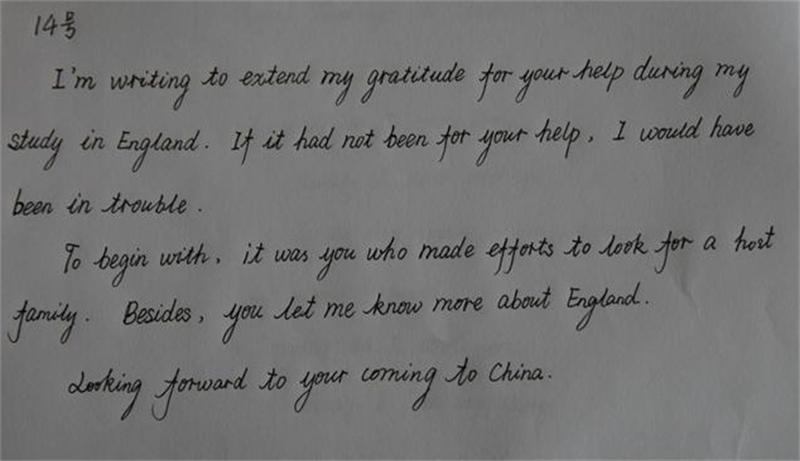 14号
I'm writing to extend my gratitude for your help during my
study in England. If it had not been for your help, I would have
been in trouble.
To begin with, it was you who made efforts to look for a host
family. Besides, you let me know more about England.
Looking forward to your coming to China.